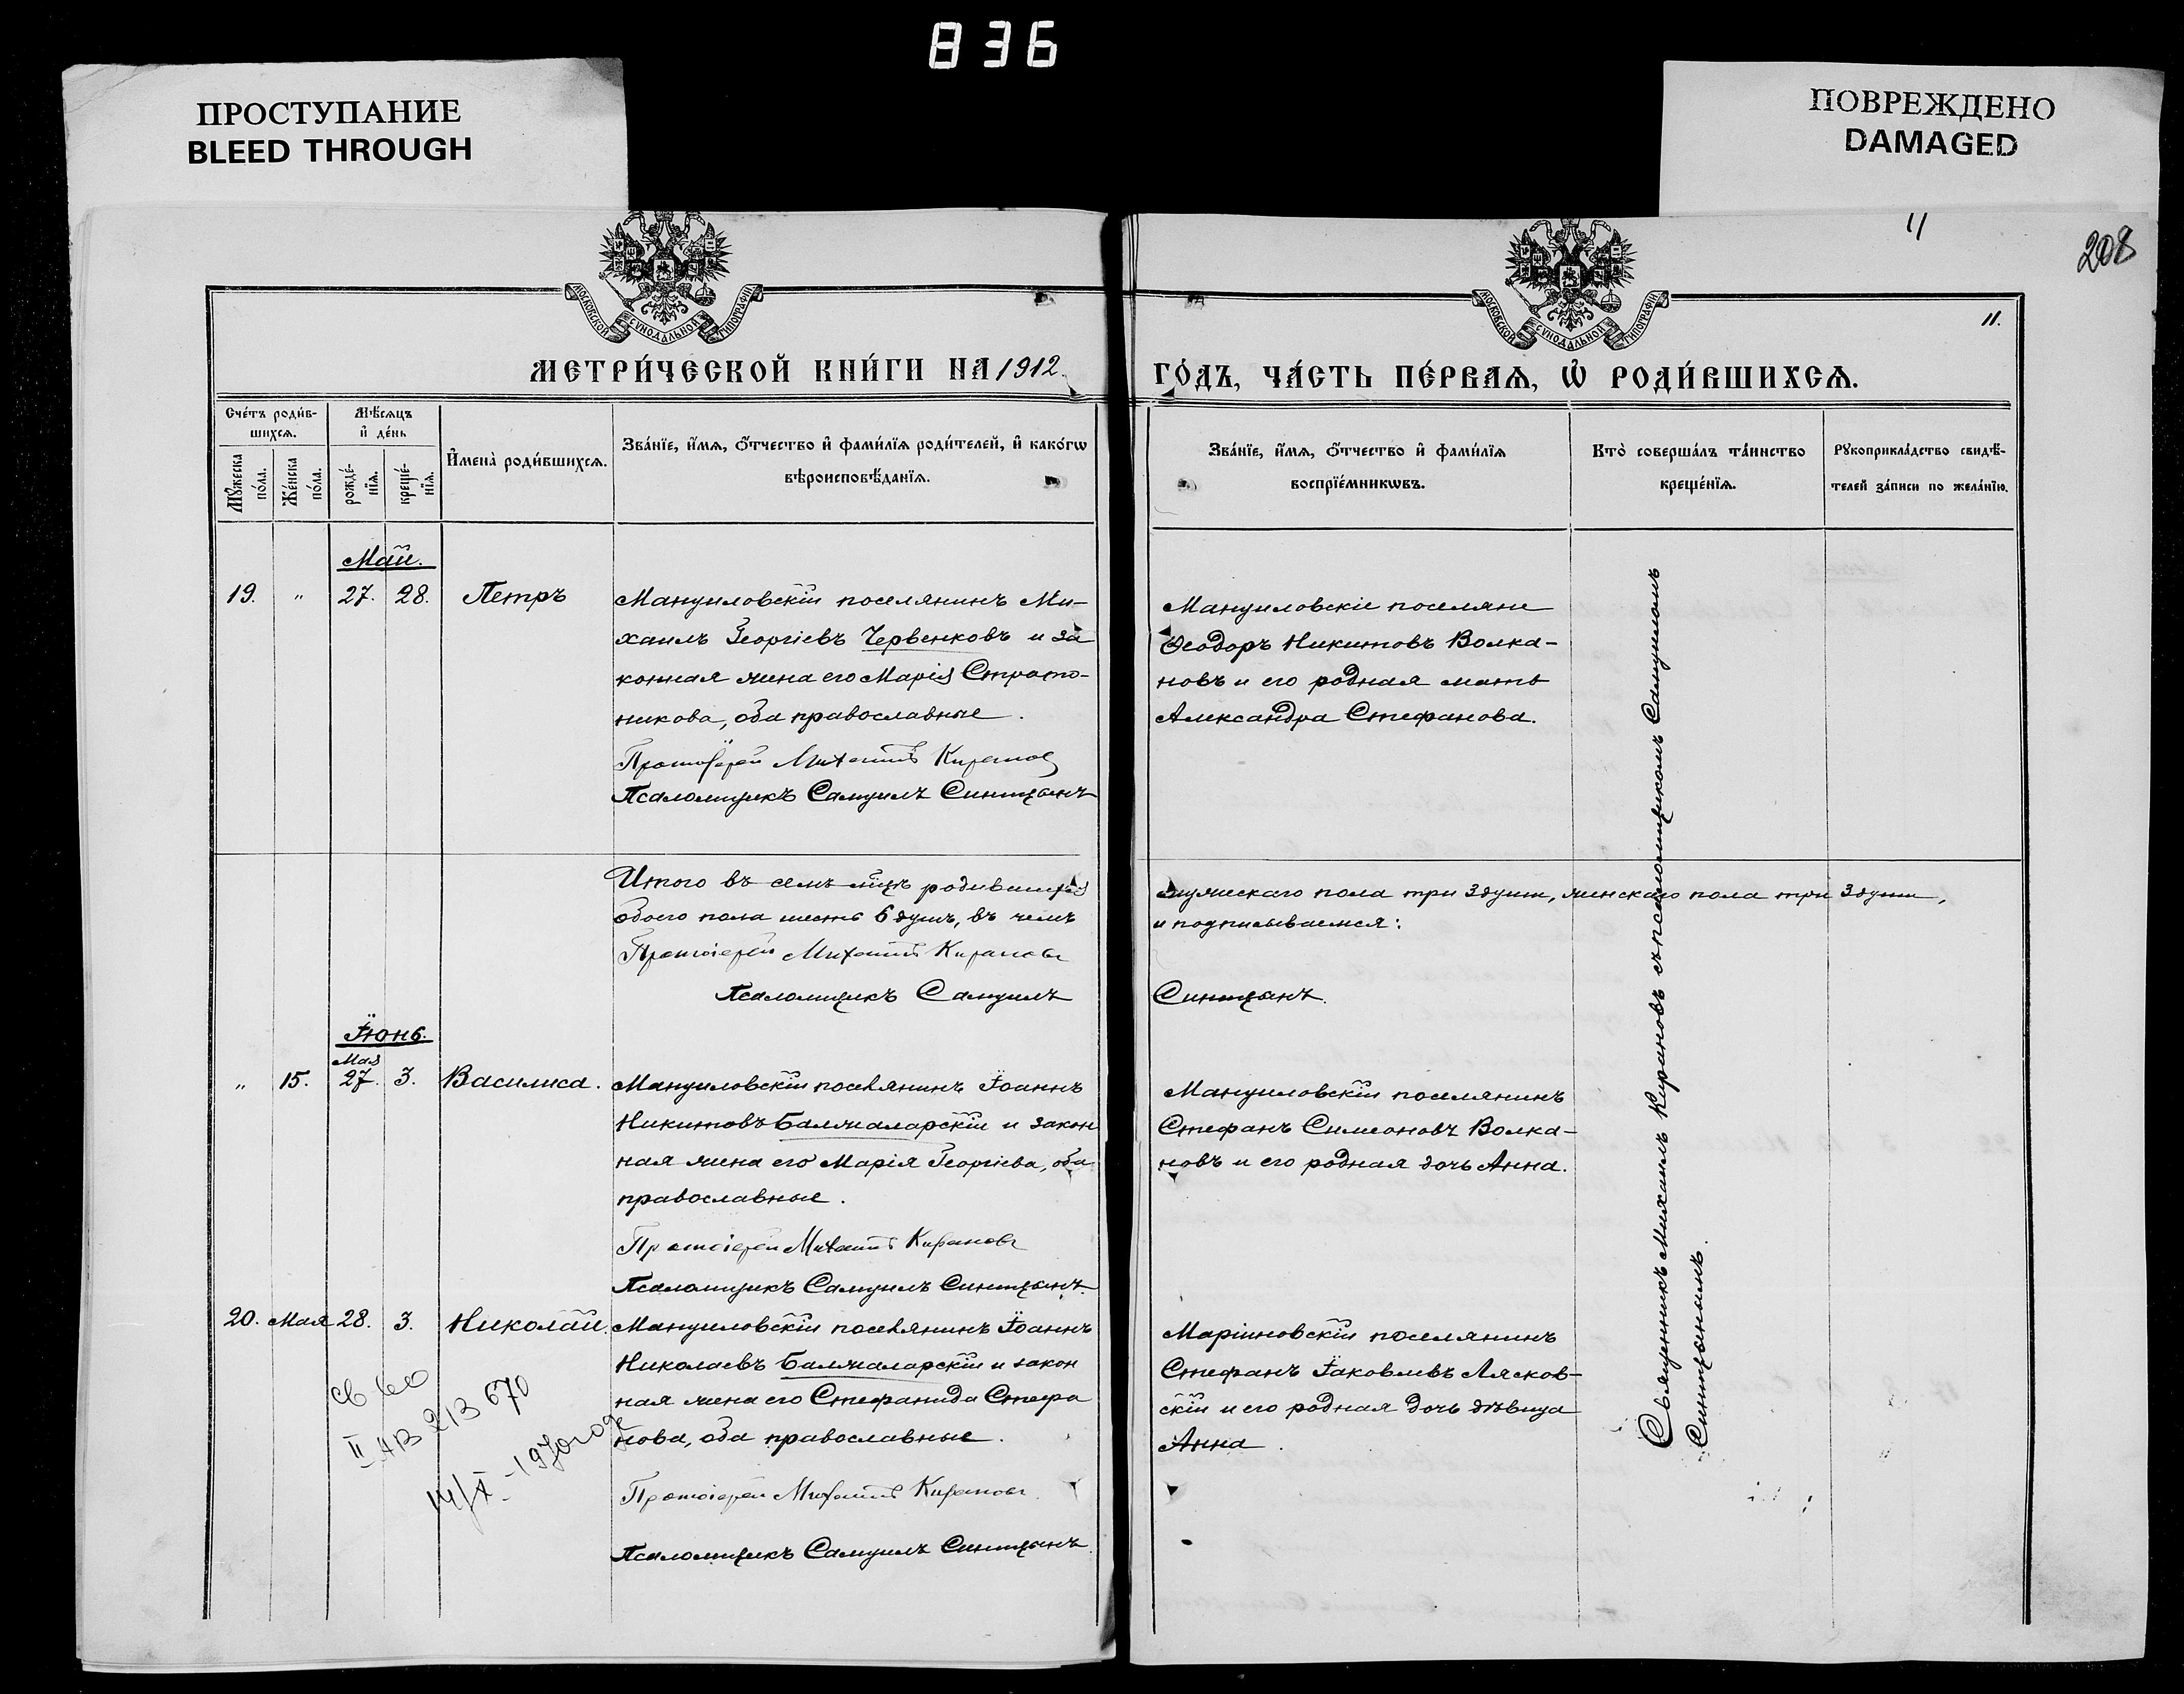 836
ПРОСТУПАНИЕ
BLEED THROUGH
ПОВРЕЖДЕНО
DAMAGED
11
208
МОСКОВСКОЙ СУНОДАЛЬНОЙ ТИПОГРАФІИ
МОСКОВСКОЙ СУНОДАЛЬНОЙ ТИПОГРАФІИ
11.
МЕТРИ́ЧЕСКОЙ КНИ́ГИ НА 1912
ГО́ДЪ, ЧА́СТЬ ПЕ́РВАѦ, Ѡ РОДИ́ВШИХСѦ.
Сче́тъ роди́в-
шихсѧ.
Мꙋ́жеска по́ла.
Же́нска по́ла.
Мѣ́сѧцъ
и҆ де́нь
рожде́-
нїѧ.
креще́-
нїѧ.
И҆мена̀ роди́вшихсѧ.
Зва́нїе, и҆́мѧ, ѻ҆́тчество и҆ фами́лїѧ роди́телей, и҆ како́гѡ
вѣроисповѣ́данїѧ.
Зва́нїе, и҆́мѧ, ѻ҆́тчество и҆ фами́лїѧ
воспрїе́мникѡвъ.
Кто̀ соверша́лъ та́инство
креще́нїѧ.
Рꙋкоприкла́дство свидѣ́-
телей за́писи по жела́нїю.
Май.
19. " 27. 28. Петръ
Мануиловскій поселянинъ Ми-
хаилъ Георгіевъ Червенковъ и за
конная жена его Марія Страто-
никова, оба православные.
Протоіерей Михаилъ Кирановъ
Псаломщикъ Самуилъ Синицынъ
Мануиловскіе поселяне
Ѳеодоръ Никитовъ Волка-
новъ и его родная мать
Александра Стефанова.
Итого въ семъ мѣцѣ родившихся
обоего пола шесть 6 душъ, въ чемъ
Протоіерей Михаилъ Кирановъ
Псаломщикъ Самуилъ
мужескаго пола три 3 души, женскаго пола три 3 души,
и подписываемся:
Синицынъ.
Іюнь.
Мая
" 15. 27. 3. Василиса.
Мануиловскій поселянинъ Іоаннъ
Никитовъ Балжаларскій и закон
ная жена его Марія Георгіева, оба
православные.
Протоіерей Михаилъ Кирановъ
Псаломщикъ Самуилъ Синицынъ.
Мануиловскій поселянинъ
Стефанъ Симеоновъ Волка-
новъ и его родная дочь Анна.
20. Мая 28. 3. Николай.
Мануиловскій поселянинъ Іоаннъ
Николаевъ Балжаларскій и закон
ная жена его Стефанида Стефа
нова, оба православные.
Протоіерей Михаилъ Кирановъ
Псаломщикъ Самуилъ Синицынъ.
Маріиновскій поселянинъ
Стефанъ Іаковлевъ Лясков-
скій и его родная дочь дѣвица
Анна.
Священникъ Михаилъ Кирановъ съ псаломщикомъ Самуиломъ
Синицынымъ.
II АВ 213 670
14/X - 1970 года